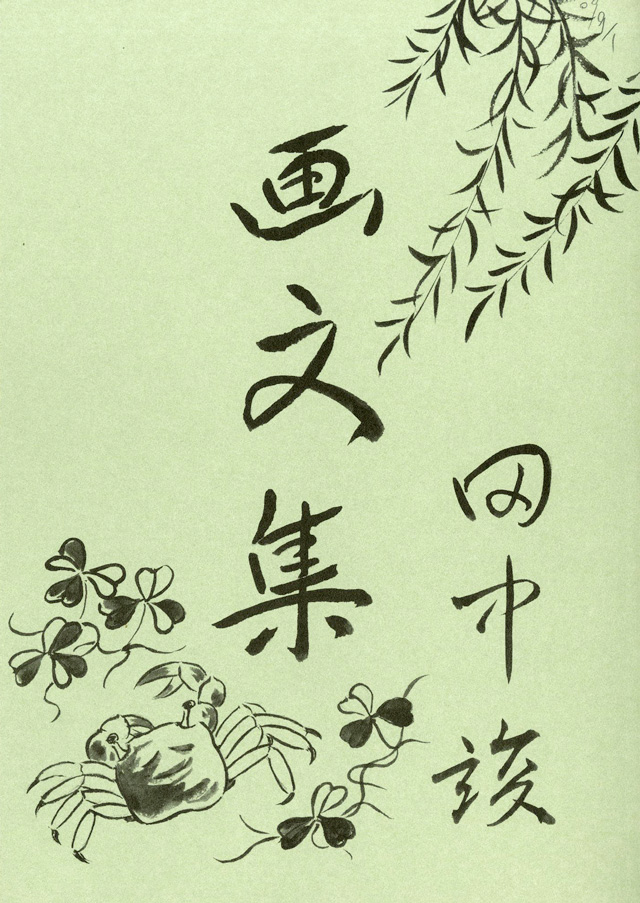 画文集
田中竣